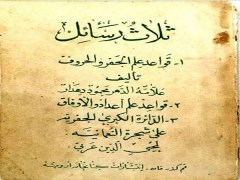 ثلاث رسائل
١- قواعد علم الجفر والحروف
تأليف
علامة الدهر محمود دهدار
٢- قواعد علم أعداد والأوفاق
٣- الدائرة الكبرى الجفرية
على شجرة النعمانية
لمحيي الدين عربي